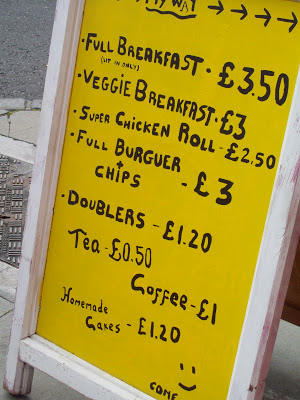 MY WAY → → → →
·FULL BREAKFAST· £3.50
(SIT IN ONLY)
·VEGGIE BREAKFAST· £3
·SUPER CHICKEN ROLL - £2.50
·FULL BURGUER
+
CHIPS - £3
·DOUBLERS - £1.20
Tea - £0.50
Coffee - £1
Homemade
Cakes - £1.20
COME